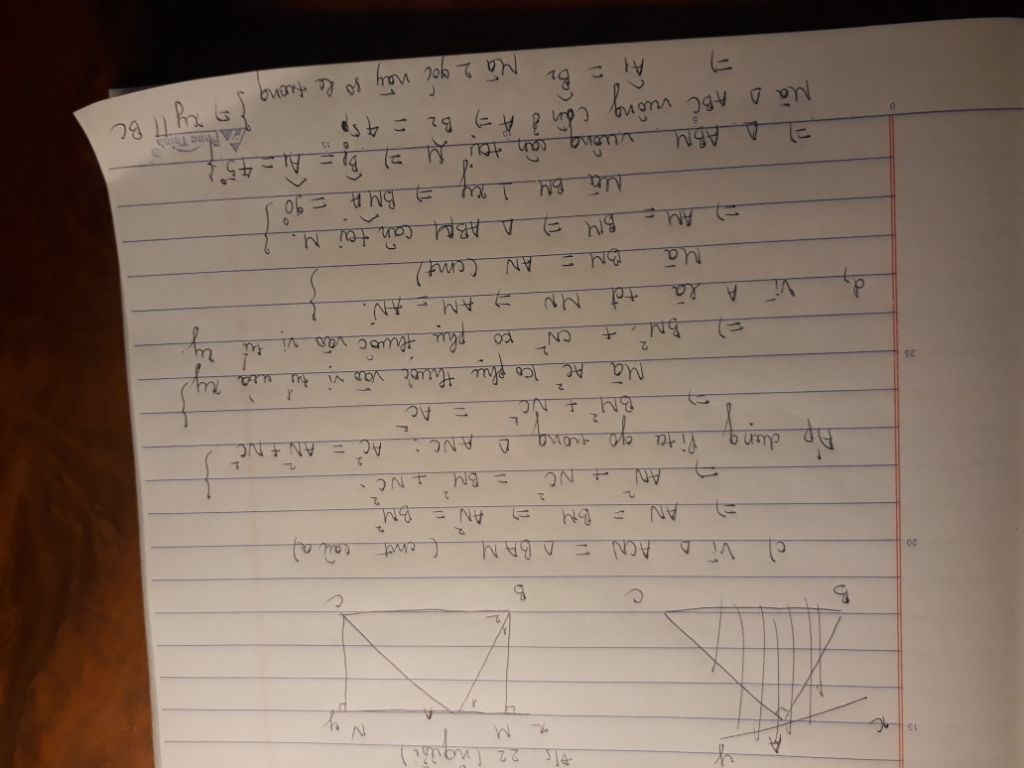 Đ/s: 22 (người)
x
A
y
B
C
x
M
A
N
y
1
1
2
B
C
c) Vì Δ ACN = Δ BAM (cmt câu a)
=> AN = BM => AN² = BM²
=> AN² + NC² = BM² + NC².
Áp dụng Pitago trong Δ ANC: AC² = AN² + NC²
=> BM² + NC² = AC²
Mà AC² ko phụ thuộc vào vị trí của xy
=> BM² + CN² ko phụ thuộc vào vị trí xy.
d, Vì A là tđ MN => AM = AN.
Mà BM = AN (cmt)
=> AM = BM => Δ ABM cân tại M.
Mà BM ⊥ xy => BMA = 90°
=> Δ ABM vuông cân tại M => B1 = A1 = 45°
Mà Δ ABC vuông cân ở A => B2 = 45°
=> A1 = B2 Mà 2 góc này so le trong
=> xy // BC
15
20
25